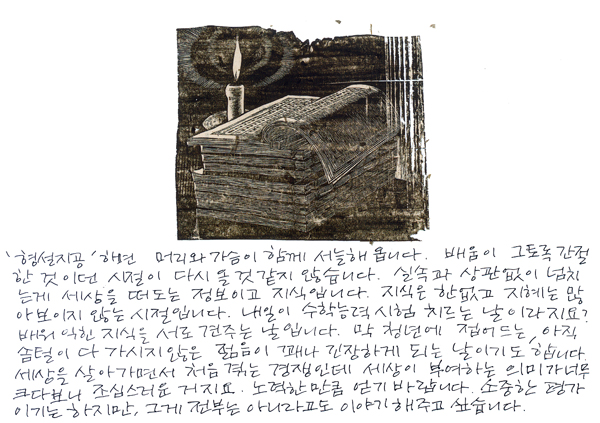 '형설지공' 하면 머리와 가슴이 함께 서늘해 옵니다. 배움이 그토록 간절
한 것이던 시절이 다시 올 것 같지 않습니다. 실속과 상관없이 넘치
는게 세상을 떠도는 정보이고 지식입니다. 지식은 한없고 지혜는 많
아 보이지 않는 시절입니다. 내일이 수학능력 시험 치르는 날이라지요?
배워 익힌 지식을 서로 견주는 날입니다. 막 청년에 접어드는, 아직
솜털이 다 가시지 않은 젊음이 꽤나 긴장하게 되는 날이기도 합니다.
세상을 살아가면서 처음 겪는 경쟁인데 세상이 부여하는 의미가 너무
크다보니 조심스러운 거지요. 노력한 만큼 얻기 바랍니다. 소중한 평가
이기는 하지만, 그게 전부는 아니라고도 이야기 해주고 싶습니다.